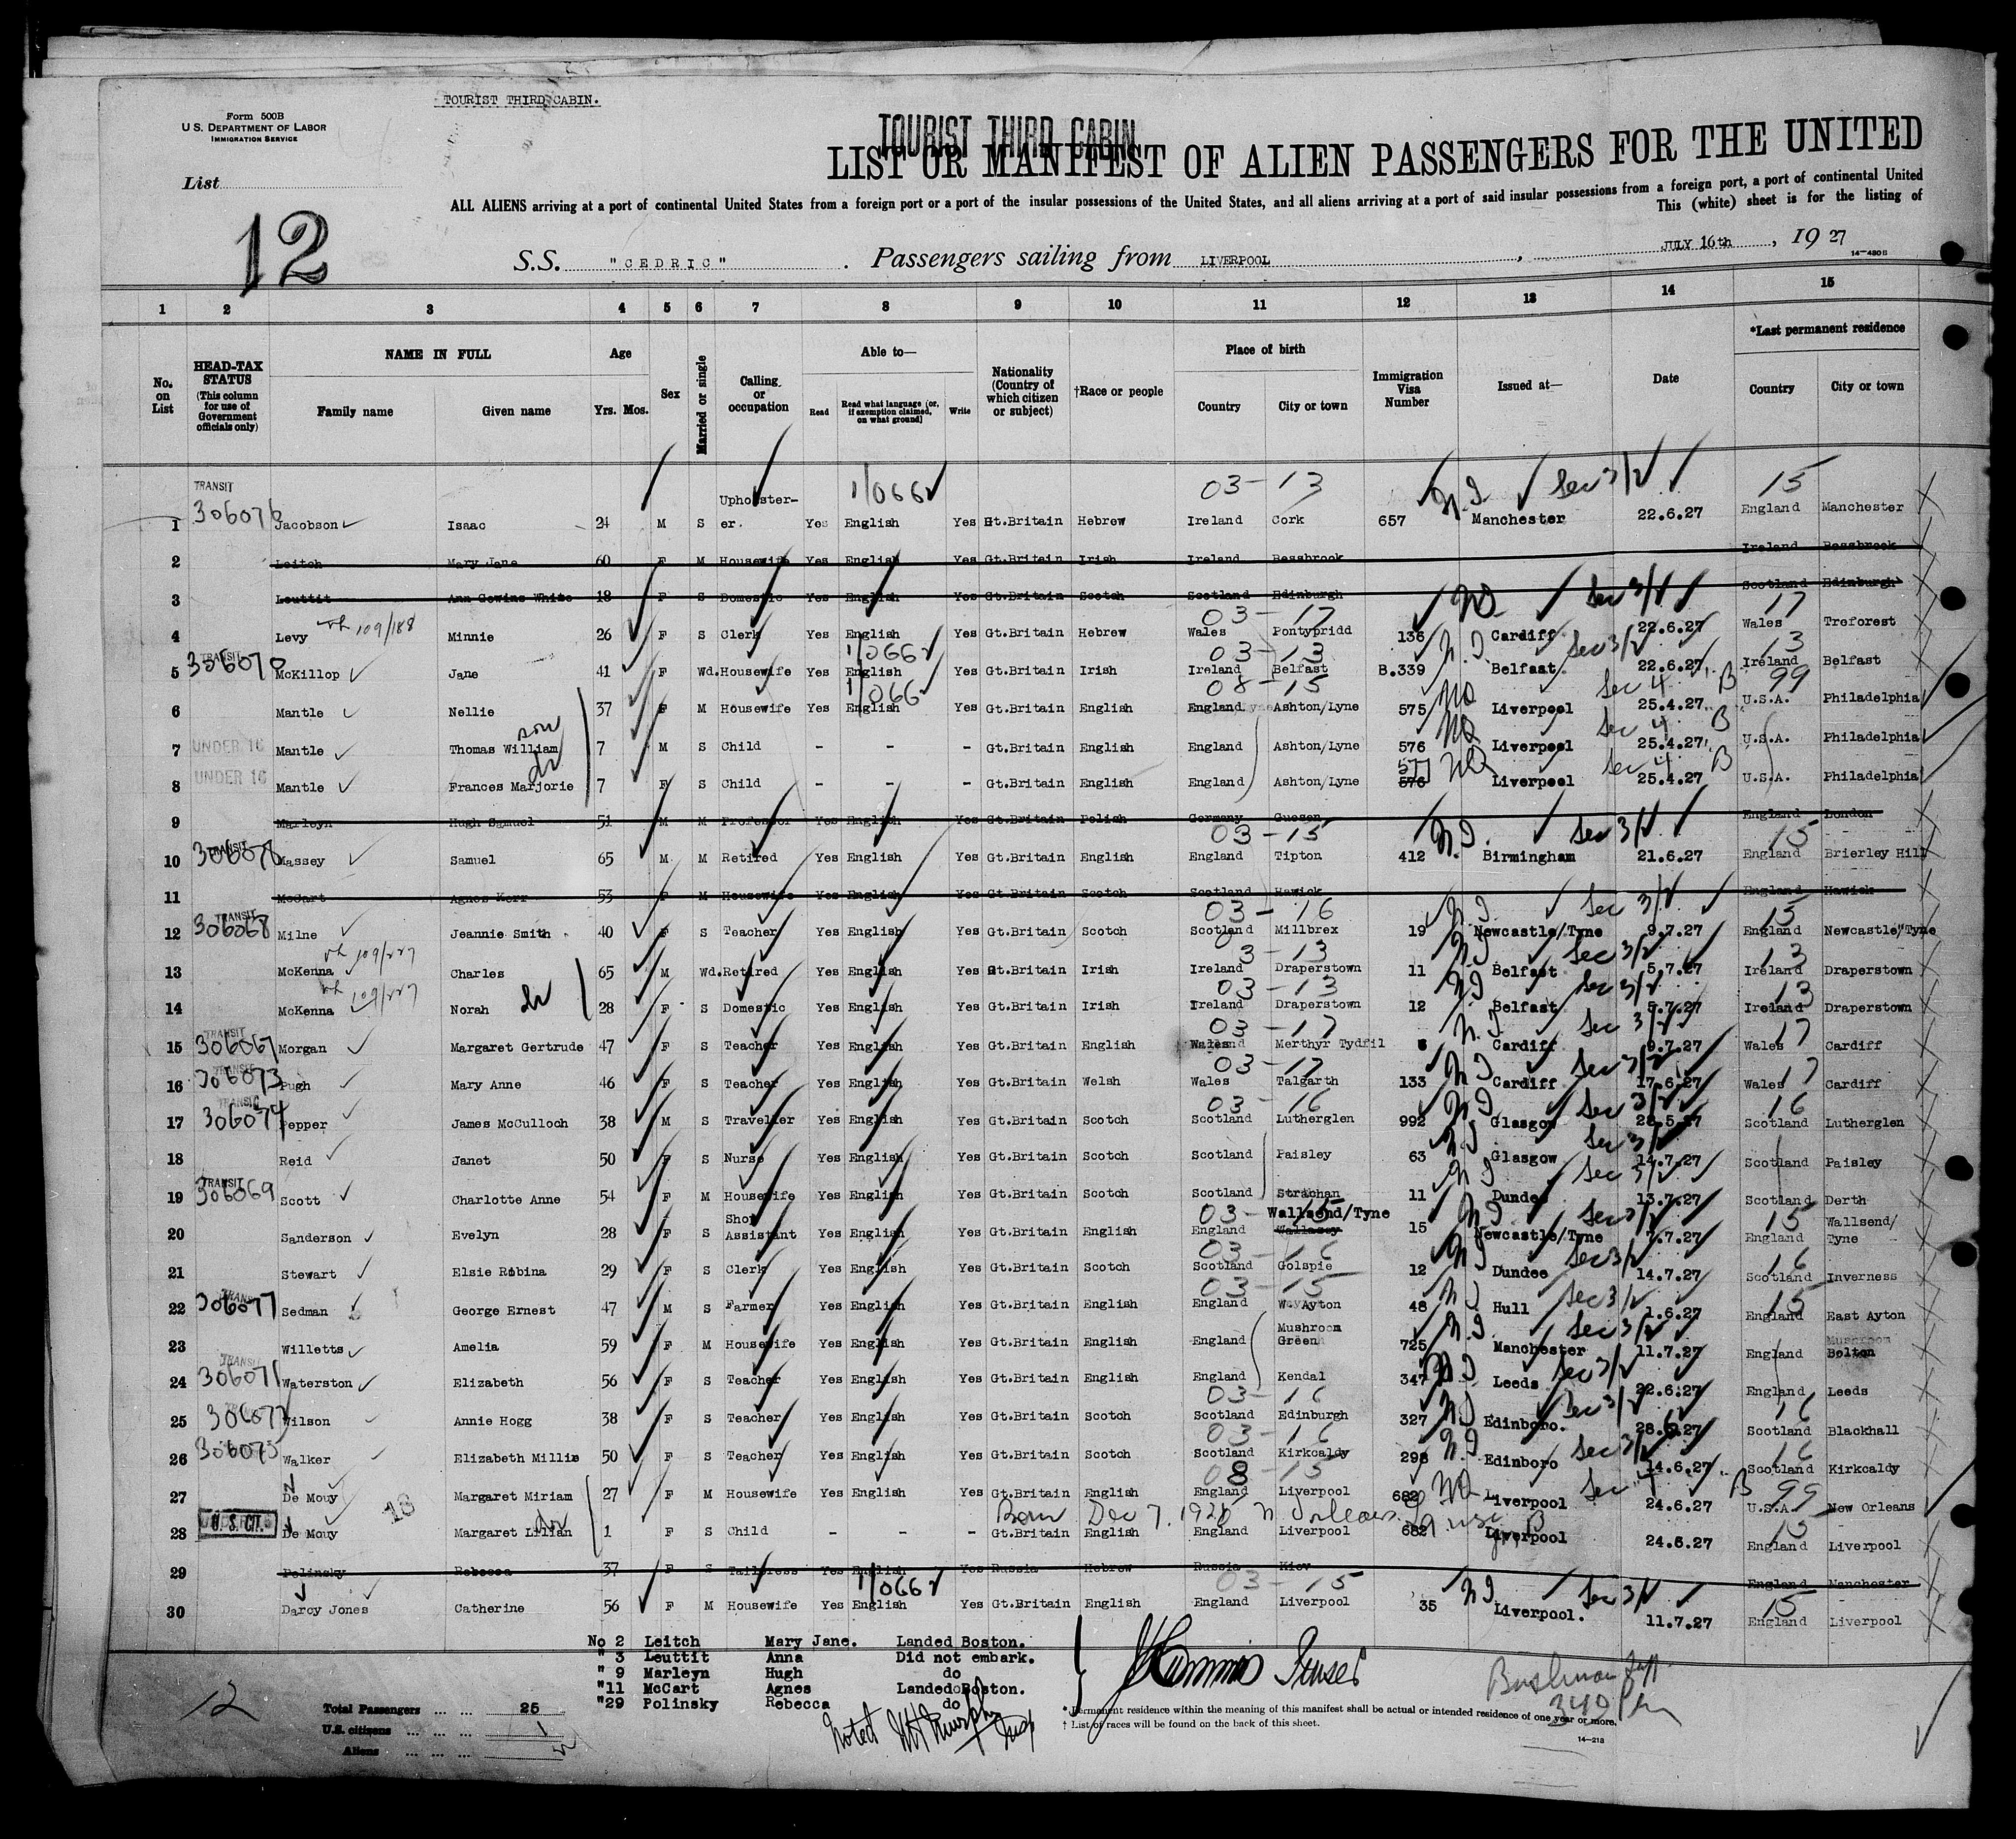 TOURIST THIRD CABIN.
Form 500B
U. S. DEPARTMENT OF LABOR
IMMIGRATION SERVICE
TOURIST THIRD CABIN
LIST OR MANIFEST OF ALIEN PASSENGERS FOR THE UNITED
List
ALL ALIENS arriving at a port of continental United States from a foreign port or a port of the insular possessions of the United States, and all aliens arriving at a port of said insular possessions from a foreign port, a port of continental United
This (white) sheet is for the listing of
12
S.S. "CEDRIC" . Passengers sailing from LIVERPOOL , JULY 16th , 19 27
14-480 B
1 2 3 4 5 6 7 8 9 10 11 12 13 14 15
No. on List
HEAD-TAX STATUS (This column for use of Government officials only)
NAME IN FULL Family name Given name
Age Yrs. Mos.
Sex
Married or single
Calling or occupation
Able to— Read Read what language (or, if exemption claimed, on what ground) Write
Nationality (Country of which citizen or subject)
†Race or people
Place of birth Country City or town
Immigration Visa Number
Issued at—
Date
*Last permanent residence Country City or town
TRANSIT 1/066 03-13 N.I. Sec 3/2 15
1 306076 Jacobson Isaac 24 M S Upholsterer. Yes English Yes Gt.Britain Hebrew Ireland Cork 657 Manchester 22.6.27 England Manchester
2 Leitch Mary Jane 60 F M Housewife Yes English Yes Gt.Britain Irish Ireland Bessbrook Ireland Bessbrook
3 Leuttit Ann Gowins White 18 F S Domestic Yes English Yes Gt.Britain Scotch Scotland Edinburgh Scotland Edinburgh
109/188 03-17 Sec 3/2 17
4 Levy Minnie 26 F S Clerk Yes English Yes Gt.Britain Hebrew Wales Pontypridd 136 Cardiff 22.6.27 Wales Treforest
TRANSIT 1/066 03-13 N.I. Sec 3/2 13
5 306070 McKillop Jane 41 F Wd. Housewife Yes English Yes Gt.Britain Irish Ireland Belfast B.339 Belfast 22.6.27 Ireland Belfast
1/066 08-15 NQ Sec 4 B 99
6 Mantle Nellie 37 F M Housewife Yes English Yes Gt.Britain English England Ashton/Lyne 575 Liverpool 25.4.27 U.S.A. Philadelphia
son NQ Sec 4 B
7 UNDER 16 Mantle Thomas William 7 M S Child - - - Gt.Britain English England Ashton/Lyne 576 Liverpool 25.4.27 U.S.A. Philadelphia
577 NQ Sec 4 B
8 UNDER 16 Mantle Frances Marjorie 7 F S Child - - - Gt.Britain English England Ashton/Lyne 576 Liverpool 25.4.27 U.S.A. Philadelphia
9 Marleyn Hugh Samuel 51 M M Professor Yes English Yes Gt.Britain Polish Germany Guesen England London
TRANSIT 03-15 N.I. Sec 3/2 15
10 Massey Samuel 65 M M Retired Yes English Yes Gt.Britain English England Tipton 412 Birmingham 21.6.27 England Brierley Hill
11 McCart Agnes Kerr 53 F M Housewife Yes English Yes Gt.Britain Scotch Scotland Hawick England Hawick
TRANSIT 03-16 N.I. Sec 3/2 15
12 306068 Milne Jeannie Smith 40 F S Teacher Yes English Yes Gt.Britain Scotch Scotland Millbrex 19 Newcastle/Tyne 9.7.27 England Newcastle/Tyne
109/227 3-13 N.I. Sec 3/2 13
13 McKenna Charles 65 M Wd. Retired Yes English Yes Gt.Britain Irish Ireland Draperstown 11 Belfast 5.7.27 Ireland Draperstown
109/227 03-13 N.I. Sec 3/2 13
14 McKenna Norah 28 F S Domestic Yes English Yes Gt.Britain Irish Ireland Draperstown 12 Belfast 5.7.27 Ireland Draperstown
TRANSIT 03-17 N.I. Sec 3/2 17
15 306067 Morgan Margaret Gertrude 47 F S Teacher Yes English Yes Gt.Britain English Wales Merthyr Tydfil Cardiff 9.7.27 Wales Cardiff
TRANSIT 03-17 N.I. Sec 3/2 17
16 306073 Pugh Mary Anne 46 F S Teacher Yes English Yes Gt.Britain Welsh Wales Talgarth 133 Cardiff 17.6.27 Wales Cardiff
TRANSIT 03-16 N.I. Sec 3/2 16
17 306074 Pepper James McCulloch 38 M S Traveller Yes English Yes Gt.Britain Scotch Scotland Lutherglen 992 Glasgow 28.5.27 Scotland Lutherglen
N.I. Sec 3/2
18 Reid Janet 50 F S Nurse Yes English Yes Gt.Britain Scotch Scotland Paisley 63 Glasgow 14.7.27 Scotland Paisley
TRANSIT N.I. Sec 3/2
19 306069 Scott Charlotte Anne 54 F M Housewife Yes English Yes Gt.Britain Scotch Scotland Strachan 11 Dundee 13.7.27 Scotland Derth
03-15 Wallsend/Tyne N.I. Sec 3/2 15
20 Sanderson Evelyn 28 F S Shop Assistant Yes English Yes Gt.Britain English England Wallasey 15 Newcastle/Tyne 7.7.27 England Wallsend/Tyne
03-16 N.I. Sec 3/2 16
21 Stewart Elsie Robina 29 F S Clerk Yes English Yes Gt.Britain Scotch Scotland Golspie 12 Dundee 14.7.27 Scotland Inverness
03-15 N.I. Sec 3/2 15
22 306077 Sedman George Ernest 47 M S Farmer Yes English Yes Gt.Britain English England W. Ayton 48 Hull 1.6.27 England East Ayton
N.I. Sec 3/2
23 Willetts Amelia 59 F M Housewife Yes English Yes Gt.Britain English England Mushroom Green 725 Manchester 11.7.27 England Bolton
TRANSIT N.I. Sec 3/2
24 306071 Waterston Elizabeth 56 F S Teacher Yes English Yes Gt.Britain English England Kendal 347 Leeds 22.6.27 England Leeds
03-16 N.I. Sec 3/2 16
25 306072 Wilson Annie Hogg 38 F S Teacher Yes English Yes Gt.Britain Scotch Scotland Edinburgh 327 Edinboro. 28.6.27 Scotland Blackhall
03-16 N.I. Sec 3/2 16
26 306075 Walker Elizabeth Millie 50 F S Teacher Yes English Yes Gt.Britain Scotch Scotland Kirkcaldy 298 Edinboro 14.6.27 Scotland Kirkcaldy
08-15 NQ Sec 4 B 99
27 De Mouy Margaret Miriam 27 F M Housewife Yes English Yes Gt.Britain English England Liverpool 682 Liverpool 24.6.27 U.S.A. New Orleans
Born Dec 7, 1925 N Orleans 15
28 U. S. CIT. De Mouy Margaret Lilian 1 F S Child - - - Gt.Britain English England Liverpool 682 Liverpool 24.6.27 England Liverpool
29 Polinsky Rebecca 37 F S Tailoress Yes English Yes Russia Hebrew Russia Kiev England Manchester
1/066 03-15 N.I. Sec 3/2 15
30 Darcy Jones Catherine 56 F M Housewife Yes English Yes Gt.Britain English England Liverpool 35 Liverpool. 11.7.27 England Liverpool
No 2 Leitch Mary Jane. Landed Boston.
" 3 Leuttit Anna Did not embark.
" 9 Marleyn Hugh do
"11 McCart Agnes Landed Boston.
"29 Polinsky Rebecca do
12
Total Passengers ... ... 25
U.S. citizens ... ... 1
Aliens ... ...
Noted Murphy Insp
* Permanent residence within the meaning of this manifest shall be actual or intended residence of one year or more.
† List of races will be found on the back of this sheet.
14-218